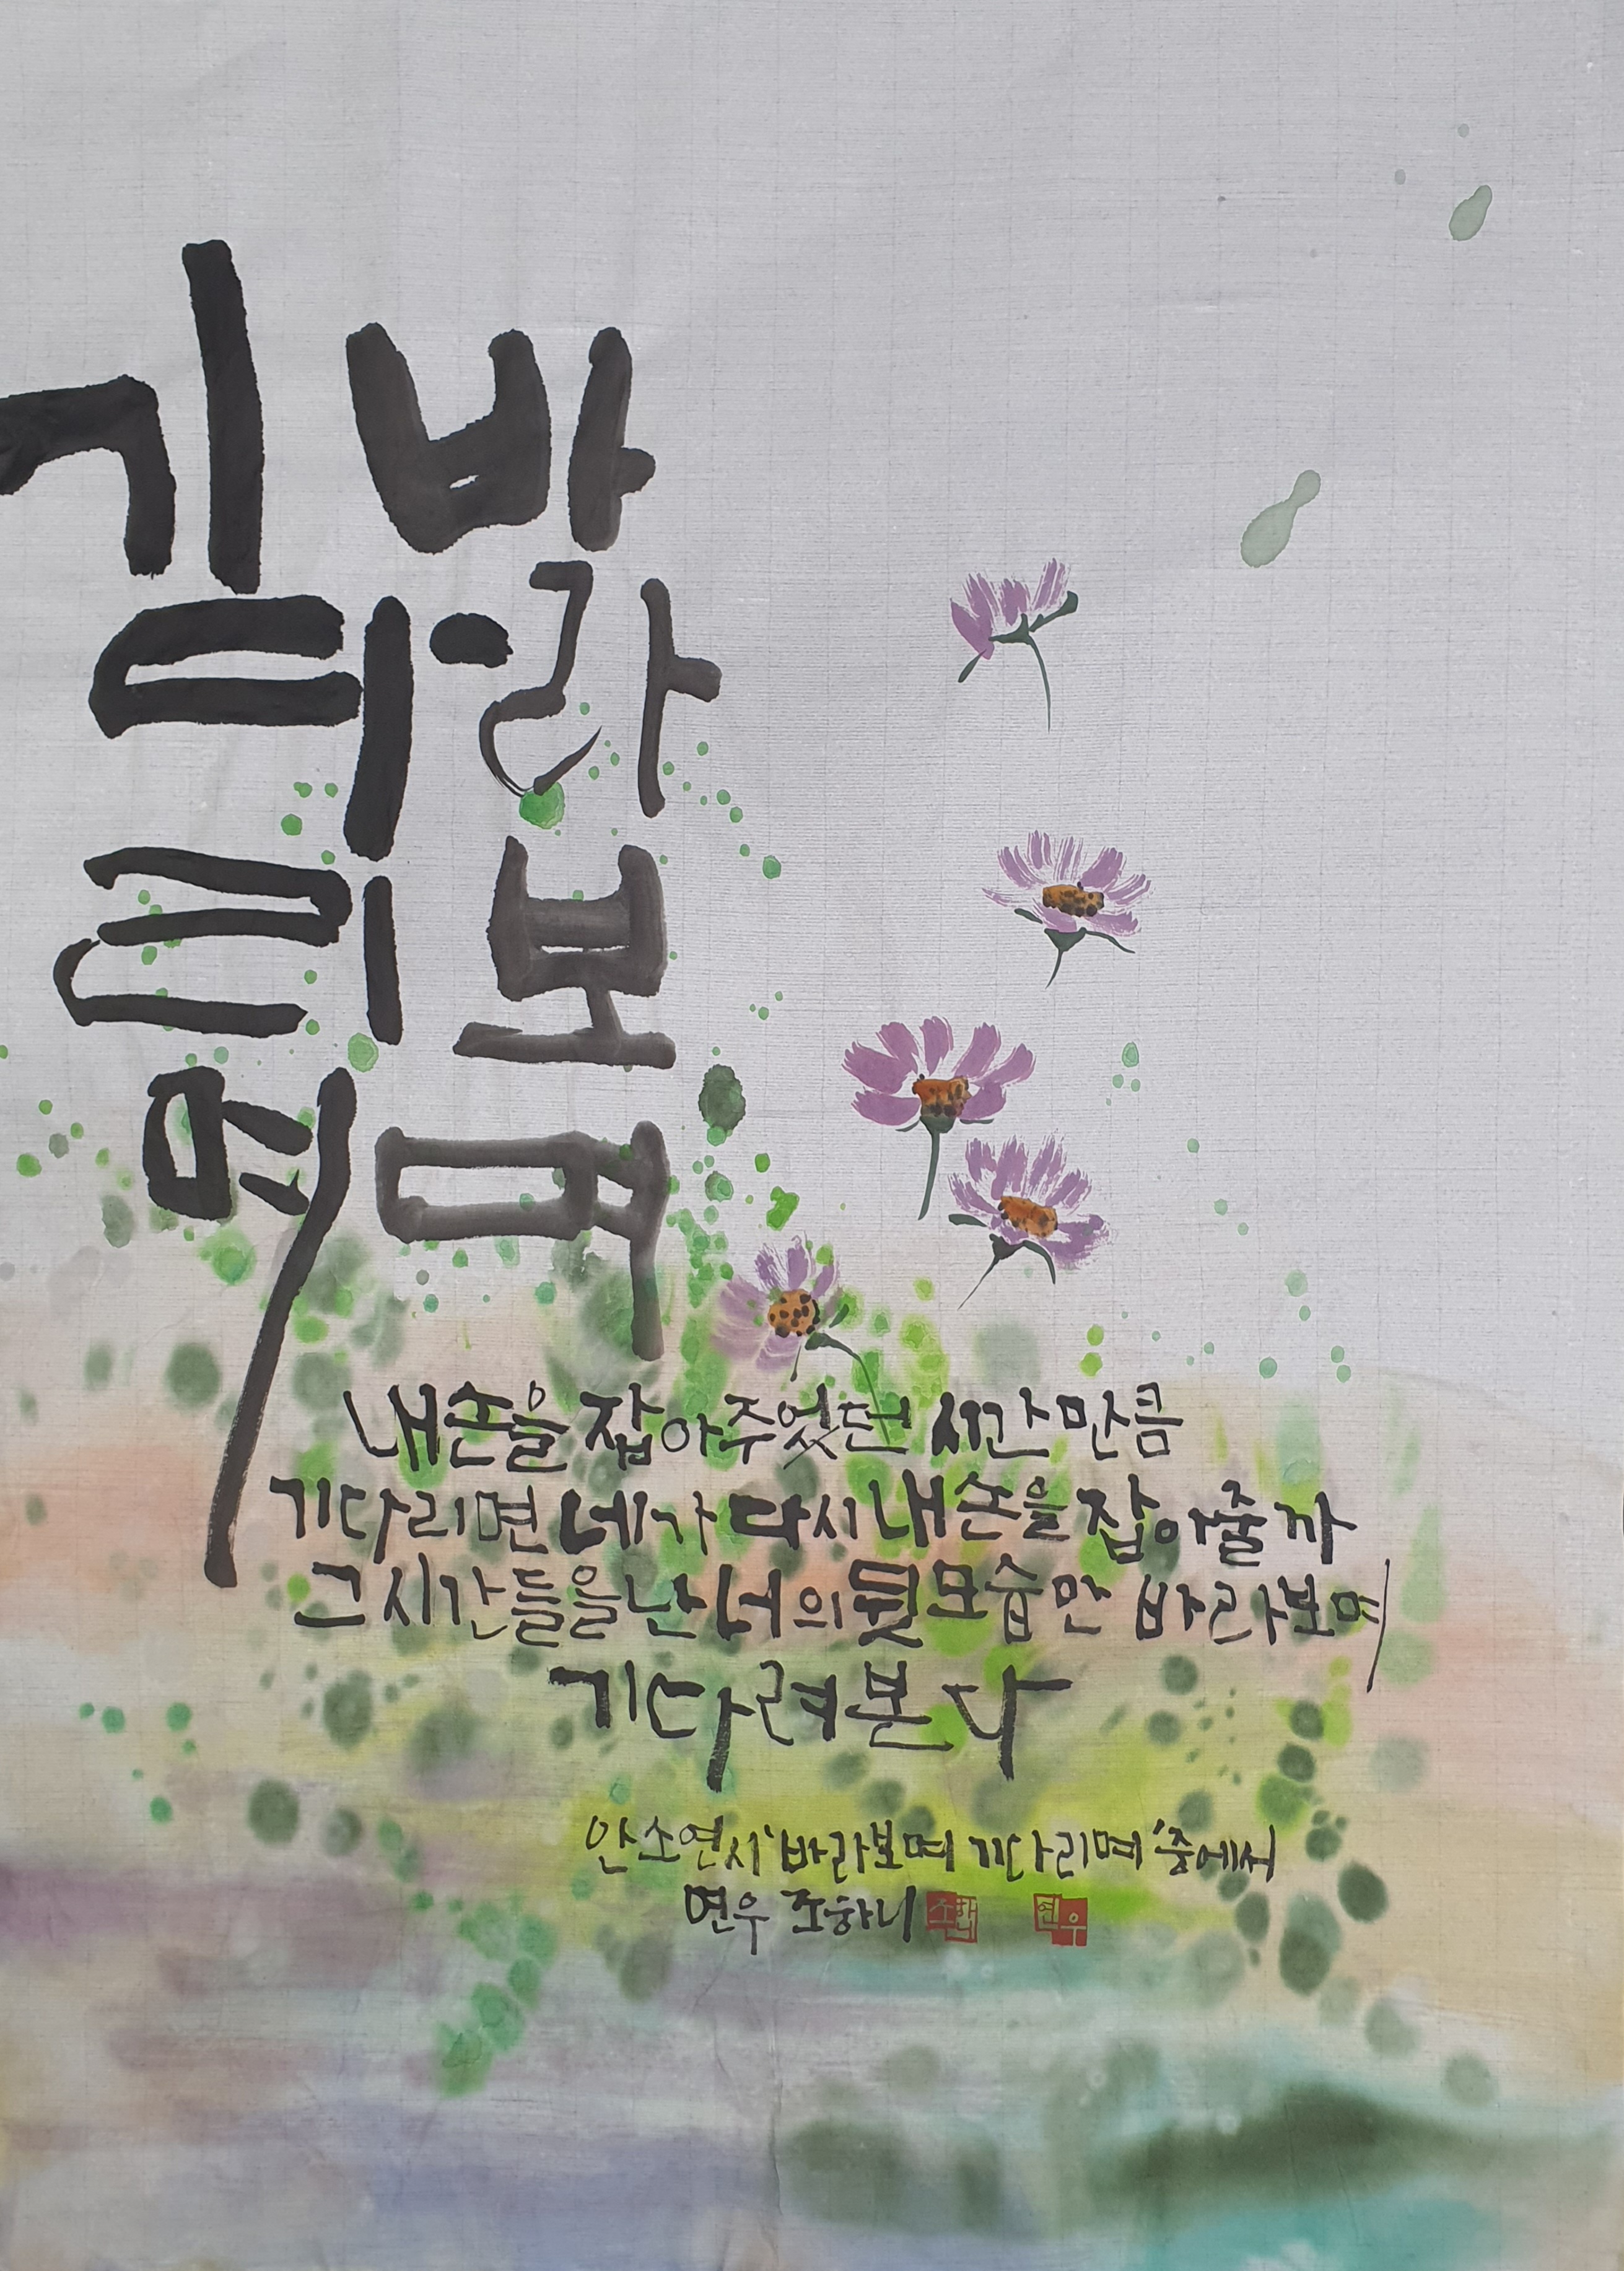 바라보며
기다리며
내손을 잡아주었던 시간만큼
기다리면 네가 다시 내손을 잡아줄까
그시간들을 난 너의 뒷모습만 바라보며
기다려본다
안소연시 '바라보며 기다리며' 중에서
연우 조하니 조하니 연우